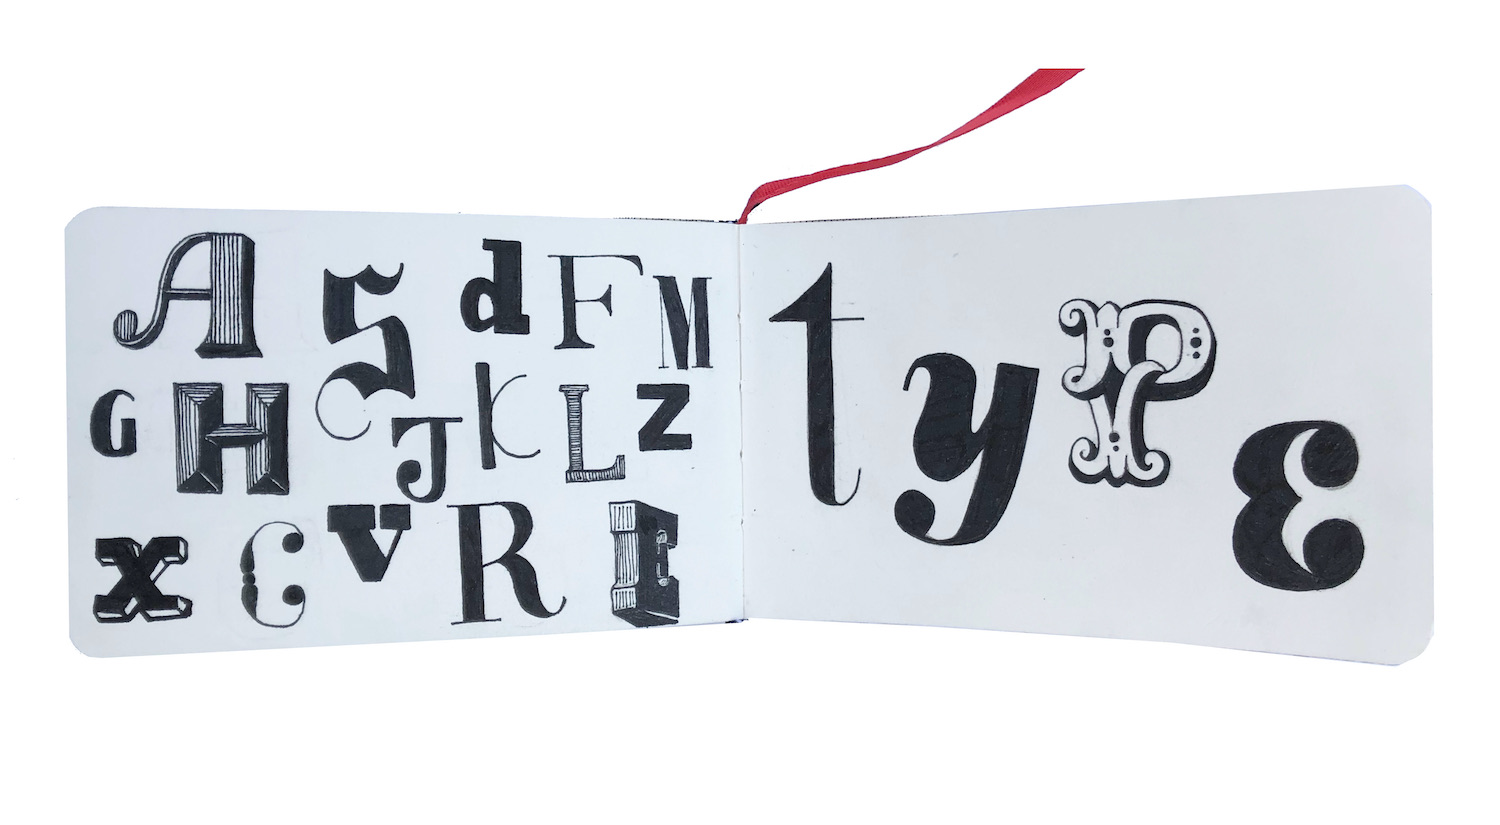 A S d F M
G H J K L Z
X C V R E
t y P E